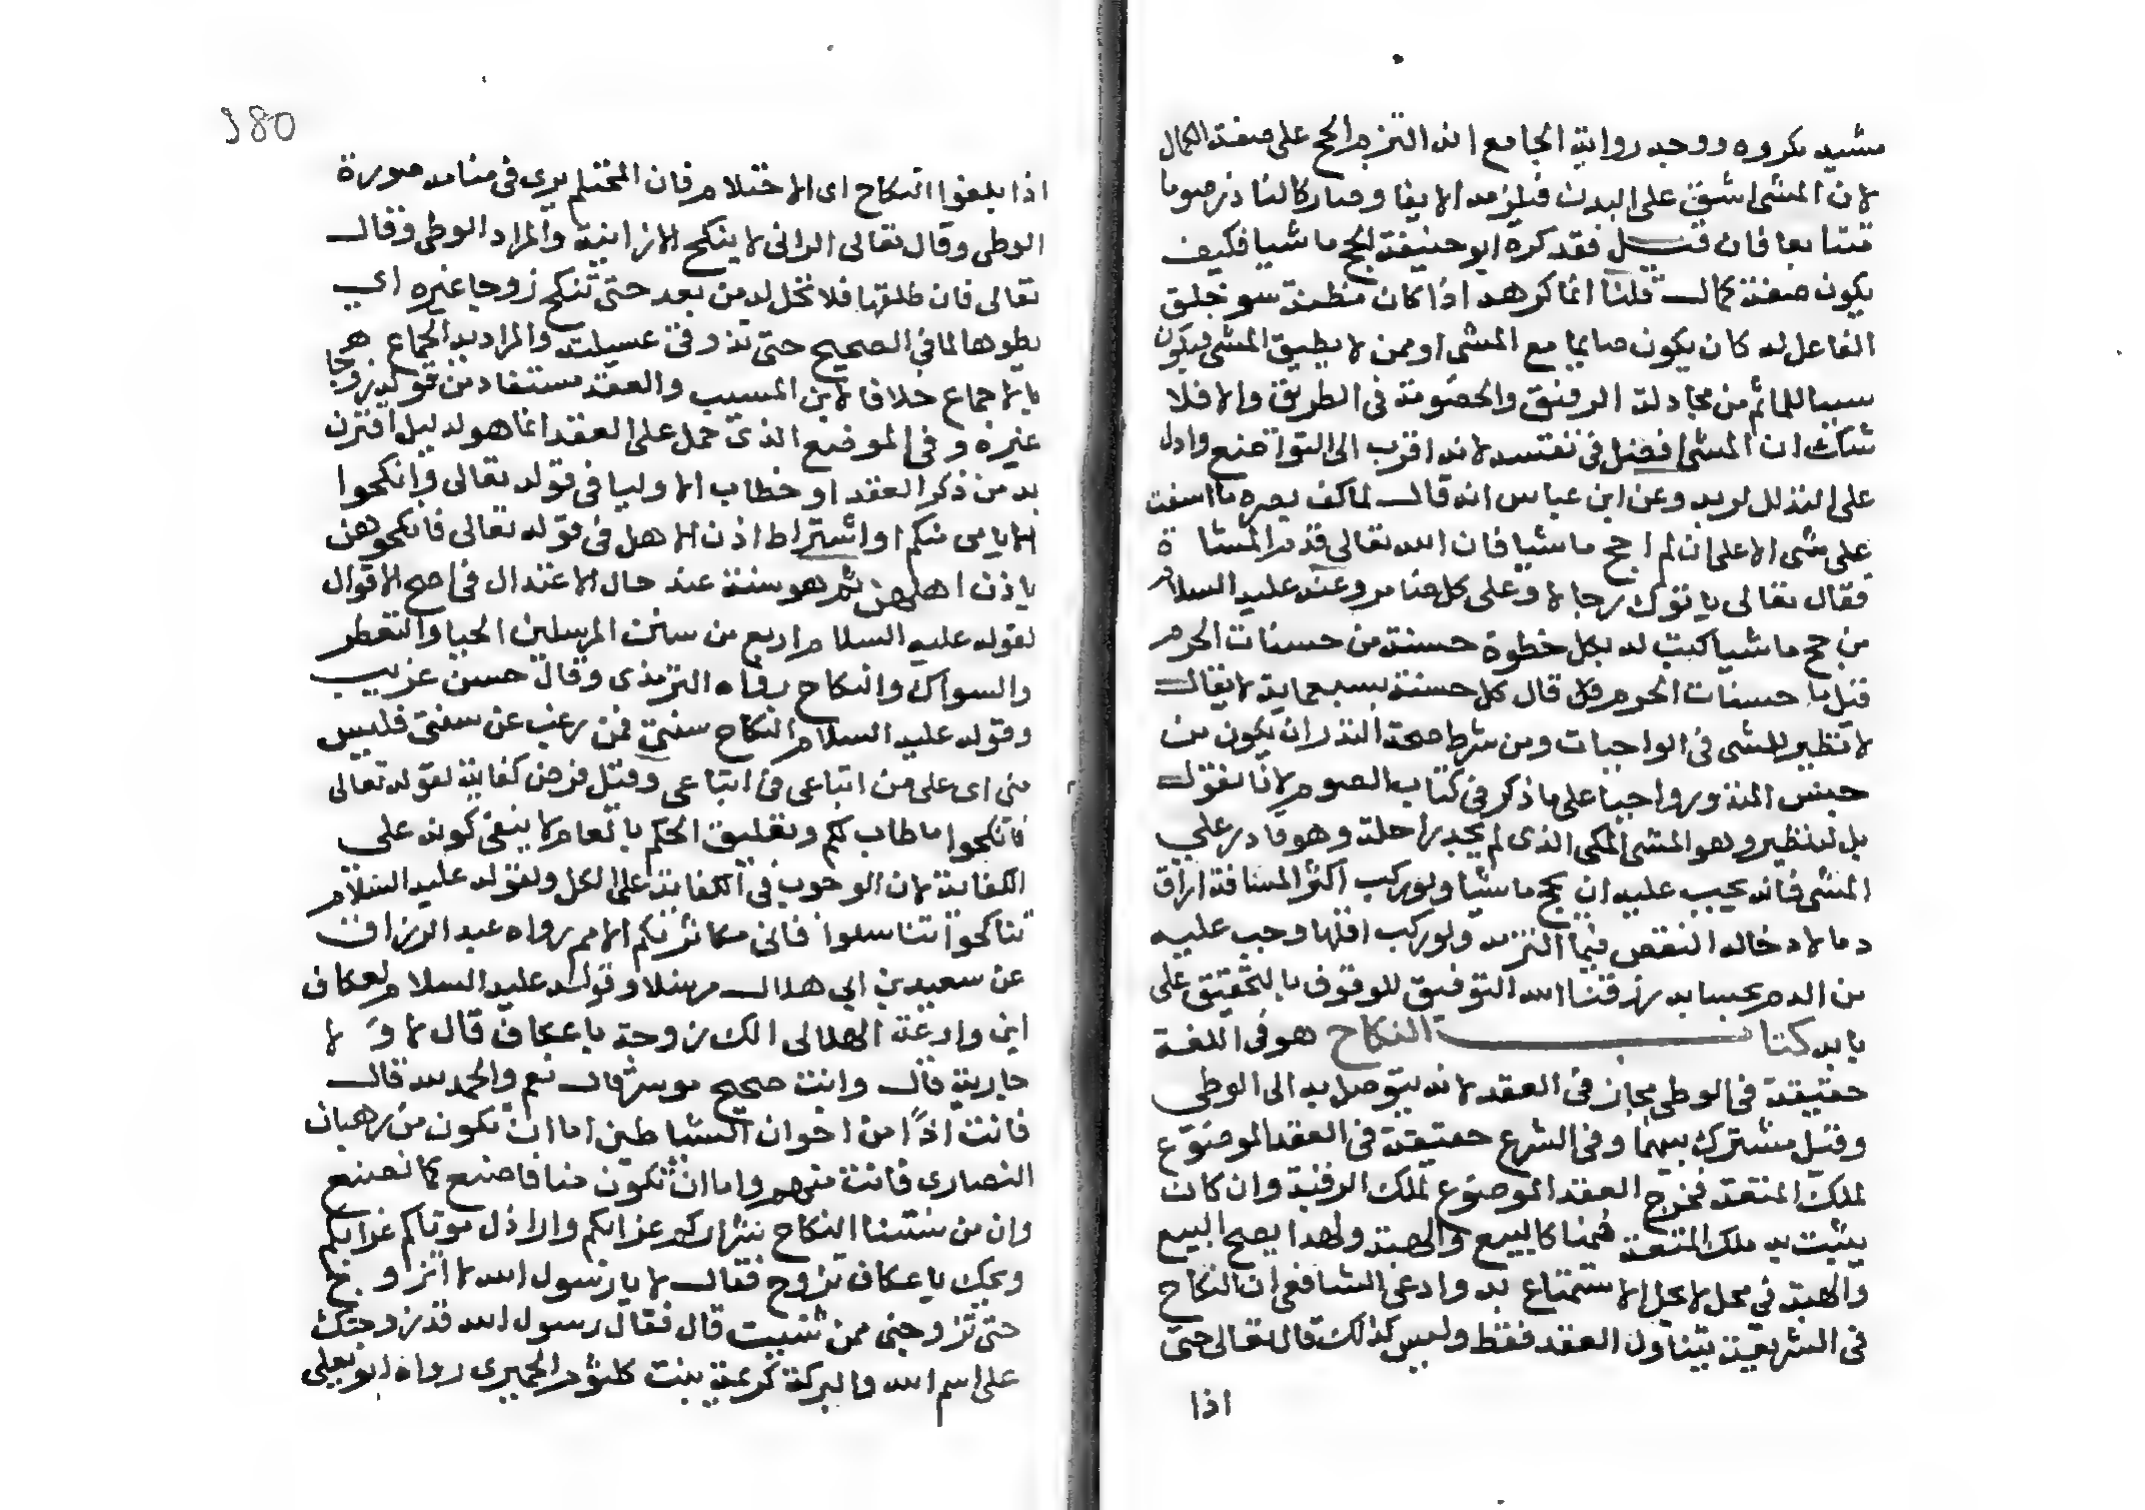 مشيه مكروه ووجه رواية الجامع انه التزم الحج على صفة الكمال
لان المشى اشق على البدن فيلزمه الايفا وصار كالناذر صوما
متتابعا فان قيل فقد كره ابو حنيفة الحج ماشيا فكيف
يكون صفة كمال قلنا انما كرهه اذا كان مظنة سو خلق
الفاعل له كان يكون صايما مع المشى او ممن لا يطيق المشى فيكون
سببا للماثم من مجادلة الرفيق والخصومة فى الطريق والا فلا
شك ان المشى افضل فى نفسه لانه اقرب الى التواضع وادل
على التذلل لربه وعن ابن عباس انه قال لما كف بصره ما اسفت
على شى الا على ان لم احج ماشيا فان الله تعالى قدم المشاة
فقال تعالى ياتوك رجالا وعلى كل ضامر وعنه عليه السلام
من حج ماشيا كتب له بكل خطوة حسنة من حسنات الحرم
قيل ما حسنات الحرم قال كل حسنة بسبعماية لا يقال
لا نظير للمشى فى الواجبات ومن شرط صحة النذر ان يكون من
جنس المنذور واجبا على ما ذكر فى كتاب الصوم لانا نقول
بل له نظير وهو المشى المكى الذى لم يجد راحلة وهو قادر على
المشى فانه يجب عليه ان يحج ماشيا ولو ركب اكثر المسافة اراق
دما لادخاله النقص فيما التزمه ولو ركب اقلها وجب عليه
من الدم بحسابه رزقنا الله التوفيق للوقوف بالتحقيق على
بابه كتاب النكاح هو فى اللغة
حقيقة فى الوطى مجاز فى العقد لانه يتوصل به الى الوطى
وقيل مشترك بينهما وفى الشرع حقيقة فى العقد الموضوع
لملك المتعة فخرج العقد الموضوع لملك الرقبة وان كان
يثبت به ملك المتعة ضمنا كالبيع والهبة ولهذا يصح البيع
والهبة فى محل لا يحل الاستمتاع به وادعى الشافعى ان النكاح
فى الشريعة يتناول العقد فقط وليس كذلك قال تعالى حتى
اذا
380
اذا بلغوا النكاح اى الاحتلام فان المحتلم يرى فى منامه صورة
الوطى وقال تعالى الزانى لا ينكح الا زانية والمراد الوطى وقال
تعالى فان طلقها فلا تحل له من بعد حتى تنكح زوجا غيره اى
يطوها لما فى الصحيح حتى تذوقى عسيلته والمراد به الجماع هو
بالاجماع خلافا لابن المسيب والعقد مستفاد من قوله زوجا
غيره وفى الموضع الذى حمل على العقد انما هو لدليل اقترن
به من ذكر العقد او خطاب الاوليا فى قوله تعالى وانكحوا
الايامى منكم او اشتراط اذن الاهل فى قوله تعالى فانكحوهن
باذن اهلهن ثم هو سنة عند حال الاعتدال فى اصح الاقوال
لقوله عليه السلام اربع من سنن المرسلين الحيا والتعطر
والسواك والنكاح رواه الترمذى وقال حسن غريب
وقوله عليه السلام النكاح سنتى فمن رغب عن سنتى فليس
منى اى على من اتباعى فى اتباعى وقيل فرض كفاية لقوله تعالى
فانكحوا ما طاب لكم وتعليق الحكم بالعام لا ينفى كونه على
الكفاية لان الوجوب فى الكفاية على الكل ولقوله عليه السلام
تناكحوا تناسلوا فانى مكاثر بكم الامم رواه عبد الرزاق
عن سعيد بن ابى هلال مرسلا وقوله عليه السلام لعكاف
ابن وادعة الهلالى الك زوجة يا عكاف قال لا ولا
جارية قال وانت صحيح موسر قال نعم والحمد لله قال
فانت اذا من اخوان الشياطين اما ان تكون من رهبان
النصارى فانت منهم واما ان تكون منا فاصنع كما نصنع
وان من سنتنا النكاح شراركم عزابكم واراذل موتاكم عزابكم
ويحك يا عكاف تزوج فقال لا يا رسول الله لا اتزوج
حتى تزوجنى ممن شيت قال فقال رسول الله قد زوجتك
على اسم الله والبركة كريمة بنت كلثوم الحميرى رواه ابو يعلى